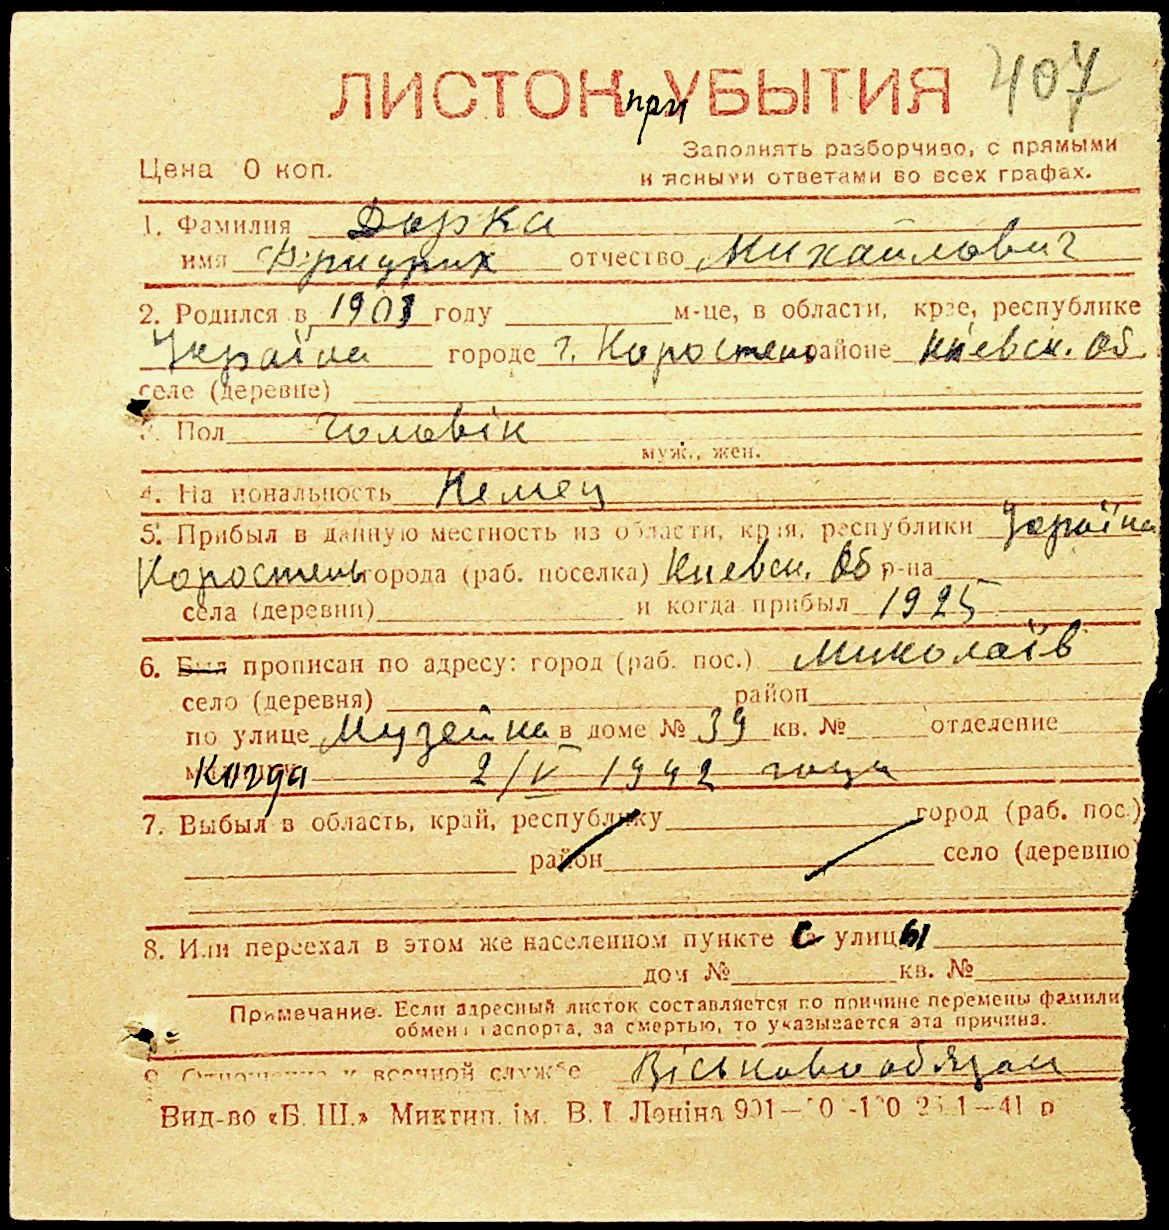 407
ЛИСТОК при УБЫТИЯ
Заполнять разборчиво, с прямыми
Цена 0 коп.
и ясными ответами во всех графах.
1. Фамилия Дырка
имя Фридрих отчество Михайлович
2. Родился в 1903 году м-це, в области, крае, республике
Україна городе г. Коростень районе Киевск. Об.
селе (деревне)
3. Пол чоловік
муж., жен.
4. Национальность Немец
5. Прибыл в данную местность из области, края, республики Україна
Коростень города (раб. поселка) Киевск. Об р-на
села (деревни) и когда прибыл 1925
6. Был прописан по адресу: город (раб. пос.) Миколаїв
село (деревня) район
по улице Музейна в доме № 39 кв. № отделение
Когда 2/IV 1942 года
7. Выбыл в область, край, республику город (раб. пос.)
район село (деревню)
8. Или переехал в этом же населенном пункте с улицы
дом № кв. №
Примечание. Если адресный листок составляется по причине перемены фамилии
обмен паспорта, за смертью, то указывается эта причина.
9. Отношение к военной службе Військовообязан
Вид-во «Б. Ш.» Миктип. ім. В. І. Леніна